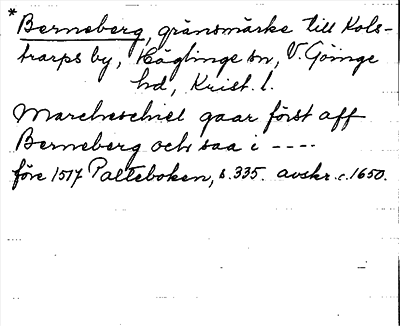 * Berneberg, gränsmärke till Kols-
trarps by, Häglinge sn, V. Göinge
hd, Krist. l.
Marcheschiel gaar först aff
Berneberg och saa i ----
före 1517 Palteboken, s. 335. avskr. c. 1650.